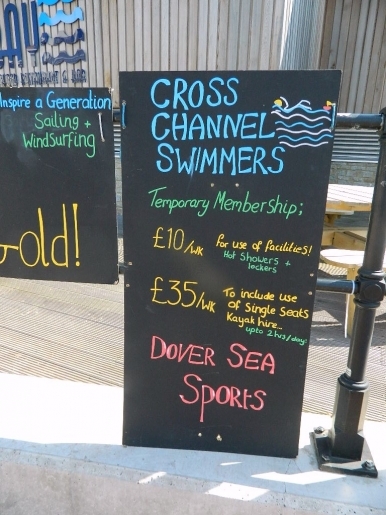 Inspire a Generation
Sailing +
Windsurfing
Gold!
CROSS
CHANNEL
SWIMMERS
Temporary Membership;
£10/WK
for use of facilities!
Hot Showers +
lockers
£35/WK
To include use
of Single Seats
Kayak hire...
upto 2hrs/day!
DOVER SEA
SPORTS